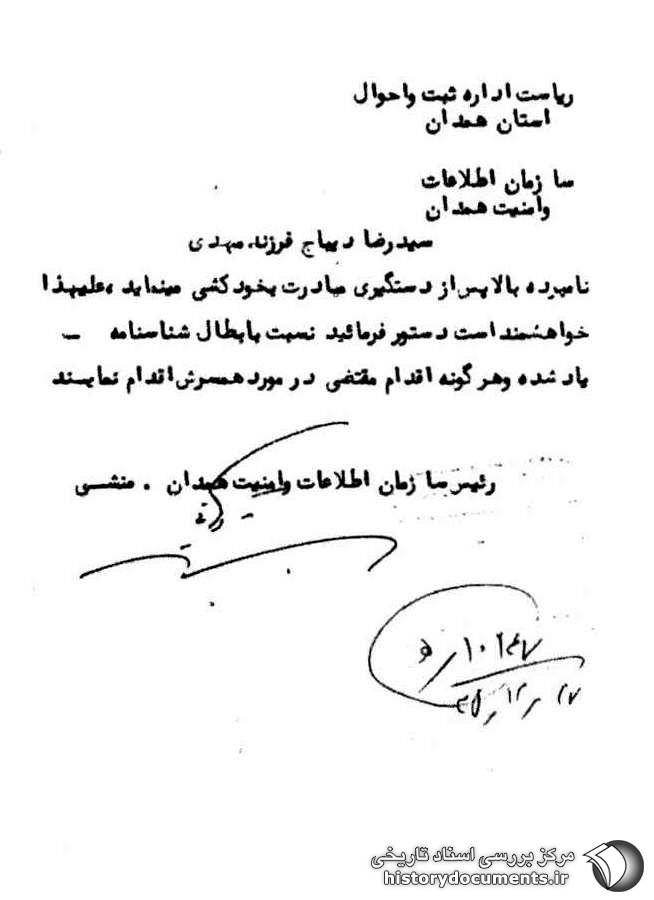 ریاست اداره ثبت واحوال
استان همدان
سازمان اطلاعات
وامنیت همدان
سیدرضا دیباج فرزند مهدی
نامبرده بالا پس از دستگیری مبادرت بخودکشی مینماید ،علیهذا
خواهشمند است دستور فرمائید نسبت بابطال شناسنامه –
یاد شده وهر گونه اقدام مقتضی در مورد همسرش اقدام نمایند
رئیس سازمان اطلاعات وامنیت همدان . منشی
مرکز بررسی اسناد تاریخی
historydocuments.ir